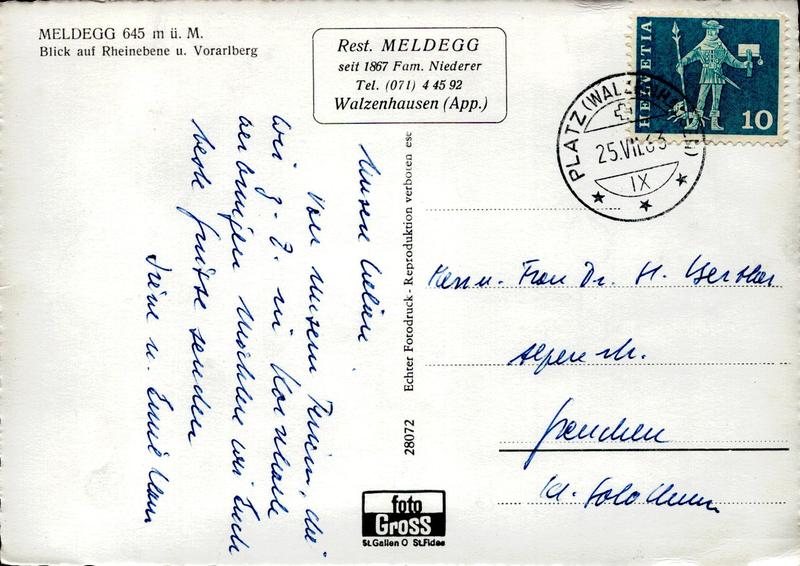 MELDEGG 645 m ü. M.
Blick auf Rheinebene u. Vorarlberg
Rest. MELDEGG
seit 1867 Fam. Niederer
Tel. (071) 4 45 92
Walzenhausen (App.)
HELVETIA
10
PLATZ (WALZENHAUSEN)
25.VII.63
IX
Unsere Lieben
Von unsern Ferien, die
wir z. Z. in
verbringen möchten wir Euch
beste Grüsse senden
Irène u. Emil
Echter Fotodruck - Reproduktion verboten
28072
Herrn u. Frau Dr. H.
Alpenstr.
Grenchen
Kt. Solothurn
foto
GROSS
St.Gallen O St.Fiden